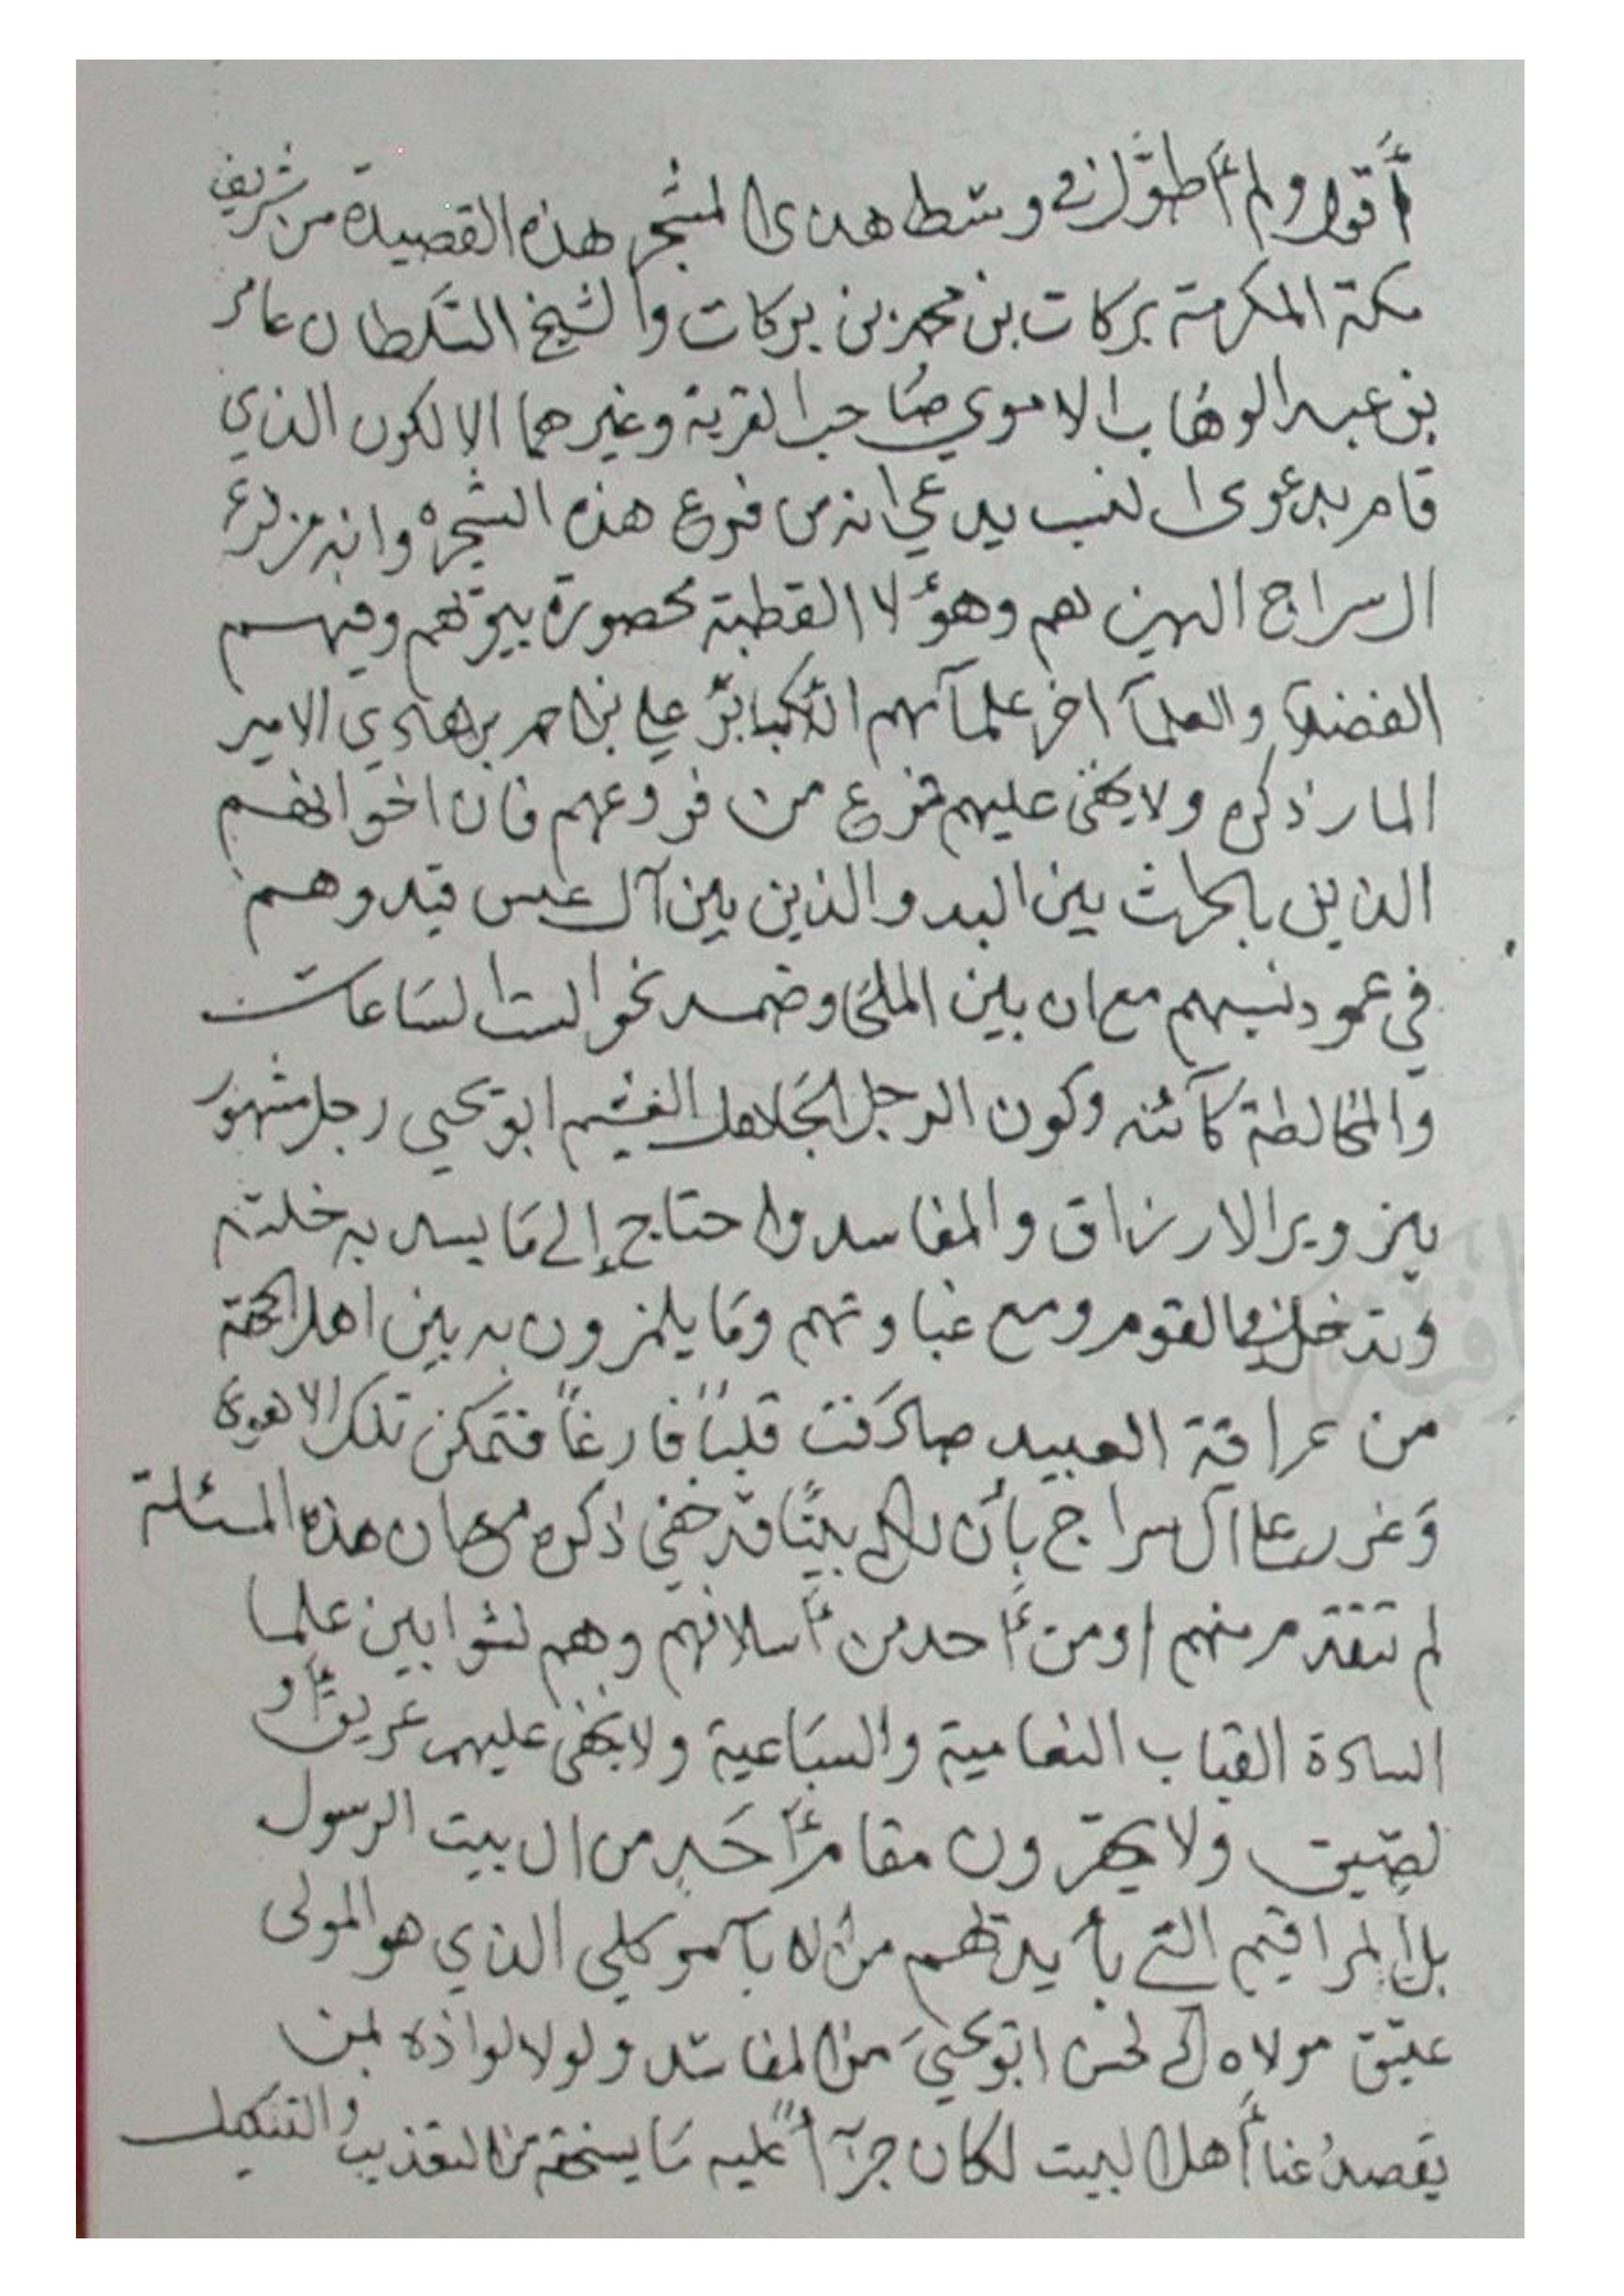 أقول ولم أطول في وسط هدى المشجر هذه القصيدة من شريف
مكة المكرمة بركات بن محمد بن بركات والشيخ السلطان عامر
بن عبد الوهاب الاموي صاحب القرية وغيرهما الا لكون الذي
قام بدعوى النسب يدعي انه من فروع هذه الشجره وانه من فرع
السراج الهين لهم وهؤلا القطبة محصورة بيوتهم وفيهم
الفضلا والعلمآ اخر علمآئهم الأكابر علي بن احمد بن هادي الامير
المار ذكره ولا يخفى عليهم فرع من فروعهم فان اخوانهم
الذين بالحرث بين البدو والذين بين آل عبس قيدوهم
في عمود نسبهم مع ان بين الملحا وضمد نحو الست الساعات
والمخالطة كآئنه وكون الرجل الجاهل الغشيم ابو يحيى رجل مشهور
بتزوير الارزاق والمفاسد واحتاج إلى ما يسد به خلته
وتدخل في القوم ومع غباوتهم وما يلمزون به بين اهل الجهة
من عراقة العبيد صادفت قلبًا فارغًا فتمكن تلك الاهوى
وغرر على آل سراج بأن لكم بيتًا قد خفي ذكره مع ان هذه المسئلة
لم تتقدم منهم او من أحد من أسلافهم وهم نشوا بين علما
السادة القباب النعامية والسباعية ولا يخفى عليهم عريق أو
لصيق ولا يحقرون مقام أحد من ال بيت الرسول
بل المراقيم التي بأيديهم من الابآ موكلي الذي هو المولى
عتيق مولاه الى لحسن ابو يحيى من المفاسد ولولا لواذه بمن
يقصدنا أهل البيت لكان جرآأً عليه ما يستحقه من التعذيب والتنكيل